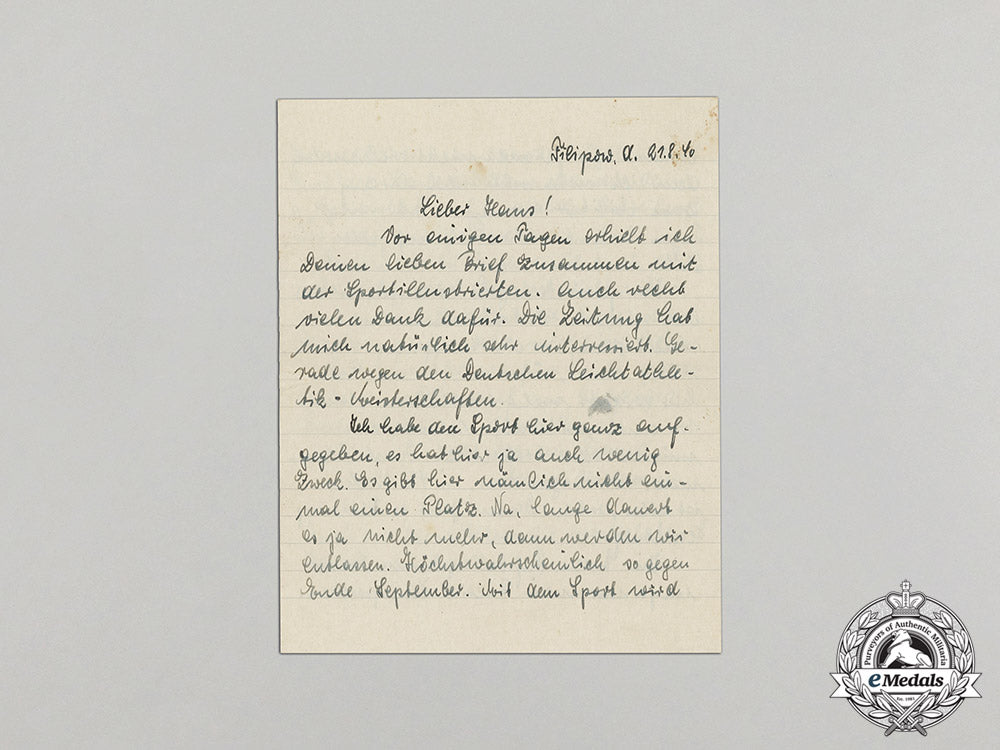 Filipow, d. 21.8.40
Lieber Hans!
Vor einigen Tagen erhielt ich
Deinen lieben Brief zusammen mit
der Sportillustrierten. Auch recht
vielen Dank dafür. Die Zeitung hat
mich natürlich sehr interressiert. Ge-
rade wegen den Deutschen Leichtathle-
tik-Meisterschaften.
Ich habe den Sport hier ganz auf-
gegeben, es hat hier ja auch wenig
Zweck. Es gibt hier nämlich nicht ein-
mal einen Platz. Na, lange dauert
es ja nicht mehr, dann werden wir
entlassen. Höchstwahrscheinlich so gegen
Ende September. Mit dem Sport wird
Purveyors of Authentic Militaria
eMedals
Est. 1981